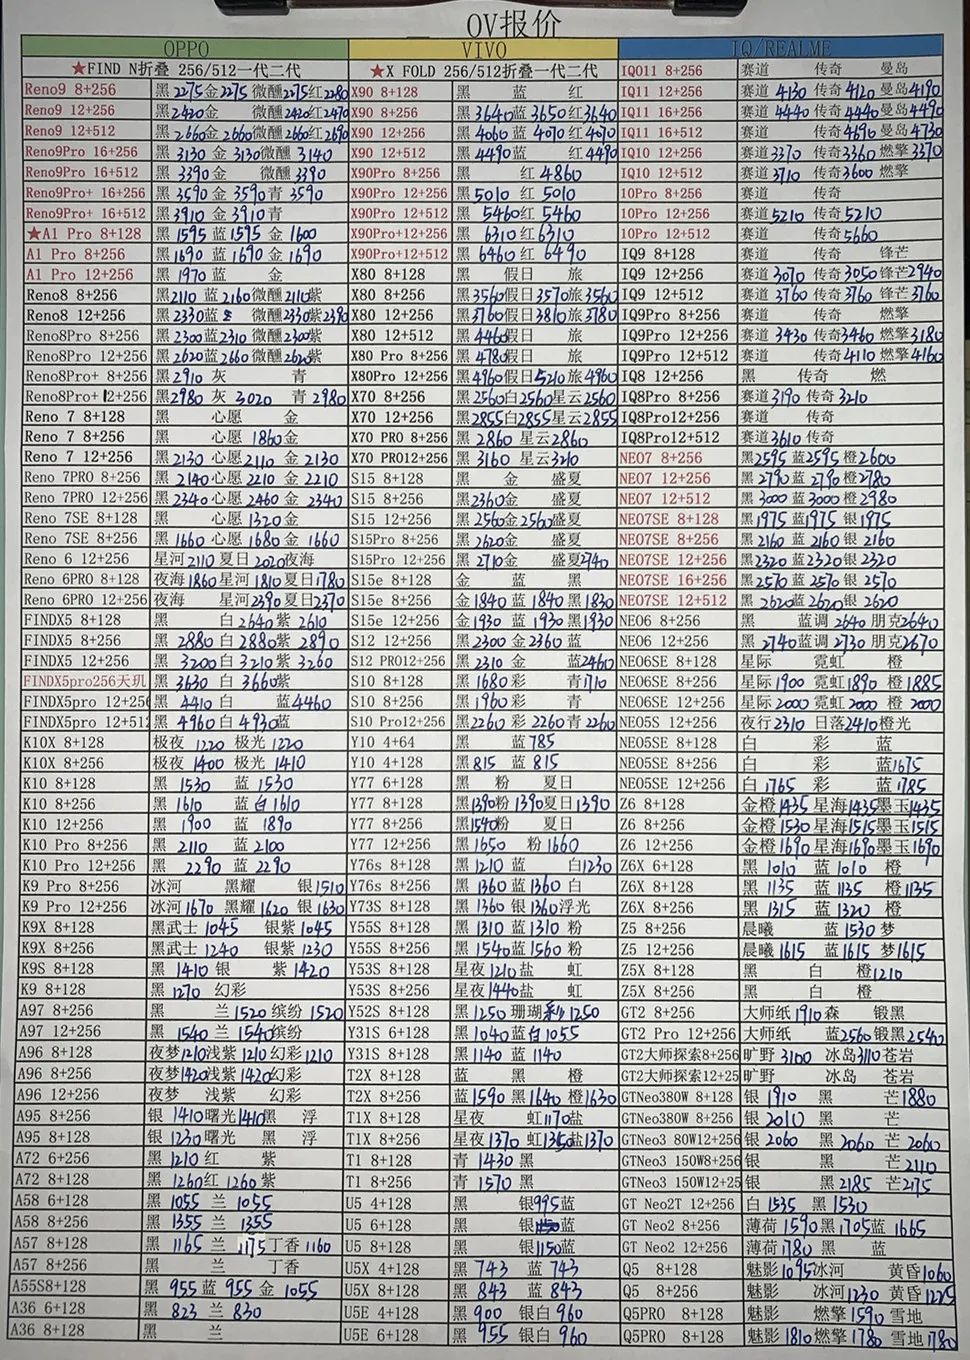 OV报价
OPPO VIVO IQ/REALME
★FIND N折叠 256/512一代二代 ★X FOLD 256/512折叠一代二代 IQ011 8+256 赛道 传奇 曼岛
Reno9 8+256 黑2275金2275 微醺2275红2280 X90 8+128 黑 蓝 红 IQ11 8+256 赛道 4130 传奇4120 曼岛4190
Reno9 12+256 黑2420金 微醺2420红2470 X90 8+256 黑3640蓝3650红3640 IQ11 16+256 赛道 4440 传奇4440 曼岛4490
Reno9 12+512 黑2660金2660微醺2660红2690 X90 12+256 黑4060蓝4070红4070 IQ11 16+512 赛道 传奇4690 曼岛4730
Reno9Pro 16+256 黑 3130 金 3130微醺 3140 X90 12+512 黑4490蓝 红4490 IQ10 12+256 赛道3370 传奇3360 燃擎3370
Reno9Pro 16+512 黑 3390 金 微醺3390 X90Pro 8+256 黑 红 4860 IQ10 12+512 赛道3710 传奇3600 燃擎
Reno9Pro+ 16+256 黑 3590 金 3590青 3590 X90Pro 12+256 黑5010 红 5010 10Pro 8+256 赛道 传奇
Reno9Pro+ 16+512 黑 3910 金 3910青 X90Pro 12+512 黑 5460红 5460 10Pro 12+256 赛道5210 传奇5210
★A1 Pro 8+128 黑1595 蓝1595 金 1600 X90Pro+12+256 黑 6310 红6310 10Pro 12+512 赛道 传奇5660
A1 Pro 8+256 黑1690 蓝1690 金1690 X90Pro+12+512 黑6460 红 6490 IQ9 8+128 赛道 传奇 锋芒
A1 Pro 12+256 黑1970 蓝 金 X80 8+128 黑 假日 旅 IQ9 12+256 赛道 3070 传奇3050锋芒2940
Reno8 8+256 黑2110 蓝2160微醺2110紫 X80 8+256 黑3560假日3570旅3560 IQ9 12+512 赛道 3760 传奇3760 锋芒3760
Reno8 12+256 黑2330蓝 微醺2330紫2390 X80 12+256 黑3760假日3810旅3780 IQ9Pro 8+256 赛道 传奇 燃擎
Reno8Pro 8+256 黑2300蓝2310 微醺2300紫 X80 12+512 黑4460假日 旅 IQ9Pro 12+256 赛道 3430 传奇3460 燃擎3180
Reno8Pro 12+256 黑2620蓝2660 微醺2620紫 X80 Pro 8+256 黑4780假日 旅 IQ9Pro 12+512 赛道 传奇4110 燃擎4160
Reno8Pro+ 8+256 黑2910 灰 青 X80Pro 12+256 黑4960假日5210旅4960 IQ8 12+256 黑 传奇 燃
Reno8Pro+ 12+256 黑2980 灰 3020 青 2980 X70 8+256 黑2560白2560星云2560 IQ8Pro 8+256 赛道3190 传奇3210
Reno 7 8+128 黑 心愿 金 X70 12+256 黑2855白2855星云2855 IQ8Pro12+256 赛道 传奇
Reno 7 8+256 黑 心愿 1860金 X70 PRO 8+256 黑 2860 星云2860 IQ8Pro12+512 赛道3610 传奇
Reno 7 12+256 黑2130 心愿2110 金 2130 X70 PRO12+256 黑 3160 星云3210 NEO7 8+256 黑2595 蓝2595 橙2600
Reno 7PRO 8+256 黑 2140心愿2210 金 2210 S15 8+128 黑 金 盛夏 NEO7 12+256 黑2790 蓝 2790橙2780
Reno 7PRO 12+256 黑2340心愿2460 金 2340 S15 8+256 黑2360金 盛夏 NEO7 12+512 黑3000 蓝3000 橙2980
Reno 7SE 8+128 黑 心愿1320金 S15 12+256 黑2560金2560盛夏 NEO7SE 8+128 黑1975 蓝1975 银1975
Reno 7SE 8+256 黑1660 心愿1680 金1660 S15Pro 8+256 黑2620金 盛夏 NEO7SE 8+256 黑2160 蓝2160 银2160
Reno 6 12+256 星河2110 夏日2020夜海 S15Pro 12+256 黑2710金 盛夏2740 NEO7SE 12+256 黑2320 蓝2320银2320
Reno 6PRO 8+128 夜海1860星河1810夏日1780 S15e 8+128 金 蓝 黑 NEO7SE 16+256 黑2570 蓝 2570 银 2570
Reno 6PRO 12+256 夜海 星河2390夏日2370 S15e 8+256 金1840 蓝 1840 黑1830 NEO7SE 12+512 黑 2620蓝2620银 2620
FINDX5 8+128 黑 白2640紫2610 S15e 12+256 金1930 蓝 1930 黑1930 NEO6 8+256 黑 蓝调 2640 朋克2640
FINDX5 8+256 黑 2880 白2880紫 2890 S12 12+256 黑2300 金2360 蓝 NEO6 12+256 黑 2740蓝调 2730 朋克2670
FINDX5 12+256 黑 3200白3210紫 3260 S12 PRO12+256 黑2310 金 蓝2460 NEO6SE 8+128 星际 霓虹 橙
FINDX5pro256天玑 黑 3630 白 3660紫 S10 8+128 黑1680彩 青1710 NEO6SE 8+256 星际1900 霓虹1890 橙1885
FINDX5pro 12+256 黑 4410 白 蓝4460 S10 8+256 黑1960彩 青 NEO6SE 12+256 星际2000 霓虹2000 橙 2000
FINDX5pro 12+512 黑 4960白 4930蓝 S10 Pro12+256 黑2260 彩 2260 青 2260 NEO5S 12+256 夜行2310 日落2410橙光
K10X 8+128 极夜 1220 极光 1220 Y10 4+64 黑 蓝785 NEO5SE 8+128 白 彩 蓝
K10X 8+256 极夜 1400 极光 1410 Y10 4+128 黑815 蓝 815 NEO5SE 8+256 白 彩 蓝1675
K10 8+128 黑 1530 蓝 1530 Y77 6+128 黑 粉 夏日 NEO5SE 12+256 白1765 彩 蓝1785
K10 8+256 黑 1610 蓝白1610 Y77 8+128 黑1390粉1390夏日1390 Z6 8+128 金橙1435 星海1435墨玉1435
K10 12+256 黑 1900 蓝 1890 Y77 8+256 黑1540粉 夏日 Z6 8+256 金橙1530 星海1515墨玉1515
K10 Pro 8+256 黑 2110 蓝 2100 Y77 12+256 黑1650 粉1660 Z6 12+256 金橙1690 星海1690墨玉1690
K10 Pro 12+256 黑 2290 蓝 2290 Y76s 8+128 黑1210 蓝 白1230 Z6X 6+128 黑 1010 蓝1010 橙
K9 Pro 8+256 冰河 黑耀 银1510 Y76s 8+256 黑1360 蓝1360 白 Z6X 8+128 黑 1135 蓝 1135 橙1135
K9 Pro 12+256 冰河1670 黑耀1620 银 1630 Y73S 8+128 黑1360 银1360浮光 Z6X 8+256 黑 1315 蓝 1320 橙
K9X 8+128 黑武士1045 银紫1045 Y55S 8+128 黑1310 蓝1310 粉 Z5 8+128 晨曦 蓝 1530梦
K9X 8+256 黑武士1240 银紫1230 Y55S 8+256 黑1540蓝1560 粉 Z5 12+256 晨曦1615 蓝1615 梦1615
K9S 8+128 黑 1410 银 紫1420 Y53S 8+128 星夜1210盐 虹 Z5X 8+128 黑 白 橙1210
K9 8+128 黑 1270 幻彩 Y53S 8+256 星夜1440盐 虹 Z5X 8+256 黑 白 橙
A97 8+256 黑 兰1520缤纷1520 Y52S 8+128 黑1250 珊瑚彩1250 GT2 8+256 大师纸1910森 锻黑
A97 12+256 黑 1540兰1540缤纷 Y31S 6+128 黑1040蓝白1055 GT2 Pro 12+256 大师纸 蓝2560锻黑2540
A96 8+128 夜梦1210浅紫1210幻彩1210 Y31S 8+128 黑1140 蓝 1140 GT2大师探索8+256 旷野 3100 冰岛3110苍岩
A96 8+256 夜梦1420浅紫1420幻彩 T2X 8+128 蓝 黑 橙 GT2大师探索12+25 旷野 冰岛 苍岩
A96 12+256 夜梦 浅紫 幻彩 T2X 8+256 蓝1590 黑1640 橙1630 GTNeo380W 8+128 银 1910 黑 芒1880
A95 8+256 银 1410曙光1410黑 浮 T1X 8+128 星夜 虹1170盐 GTNeo380W 8+256 银2010 黑 芒
A95 8+128 银 1230曙光 黑 浮 T1X 8+256 星夜1370 虹1350盐1370 GTNeo3 80W12+256 银2060 黑2060 芒2060
A72 6+256 黑1210红 紫 T1 8+128 青 1430黑 GTNeo3 150W8+256 银 黑 芒2110
A72 8+128 黑 1260红1260紫 T1 8+256 青 1570黑 GTNeo3 150W12+25 银 黑2185 芒2175
A58 6+128 黑 1055 兰 1055 U5 4+128 黑 银995蓝 GT Neo2T 12+256 白1535 黑1530
A58 8+256 黑 1355 兰 1355 U5 6+128 黑 银 蓝 GT Neo2 8+256 薄荷1590黑1705蓝 1665
A57 8+128 黑 1165 兰 1175丁香1160 U5 8+128 黑 银1150蓝 GT Neo2 12+256 薄荷1780 黑 蓝
A57 8+256 黑 兰 丁香 U5X 4+128 黑743 蓝743 Q5 8+128 魅影1095冰河 黄昏1060
A55S8+128 黑 955蓝 955 金 1055 U5X 8+128 黑843 蓝843 Q5 8+256 魅影 冰河1230 黄昏1225
A36 6+128 黑 823 兰 830 U5E 4+128 黑900 银白960 Q5PRO 8+128 魅影 燃擎1590 雪地
A36 8+128 黑 兰 U5E 6+128 黑955 银白960 Q5PRO 8+128 魅影1810燃擎1780 雪地1780